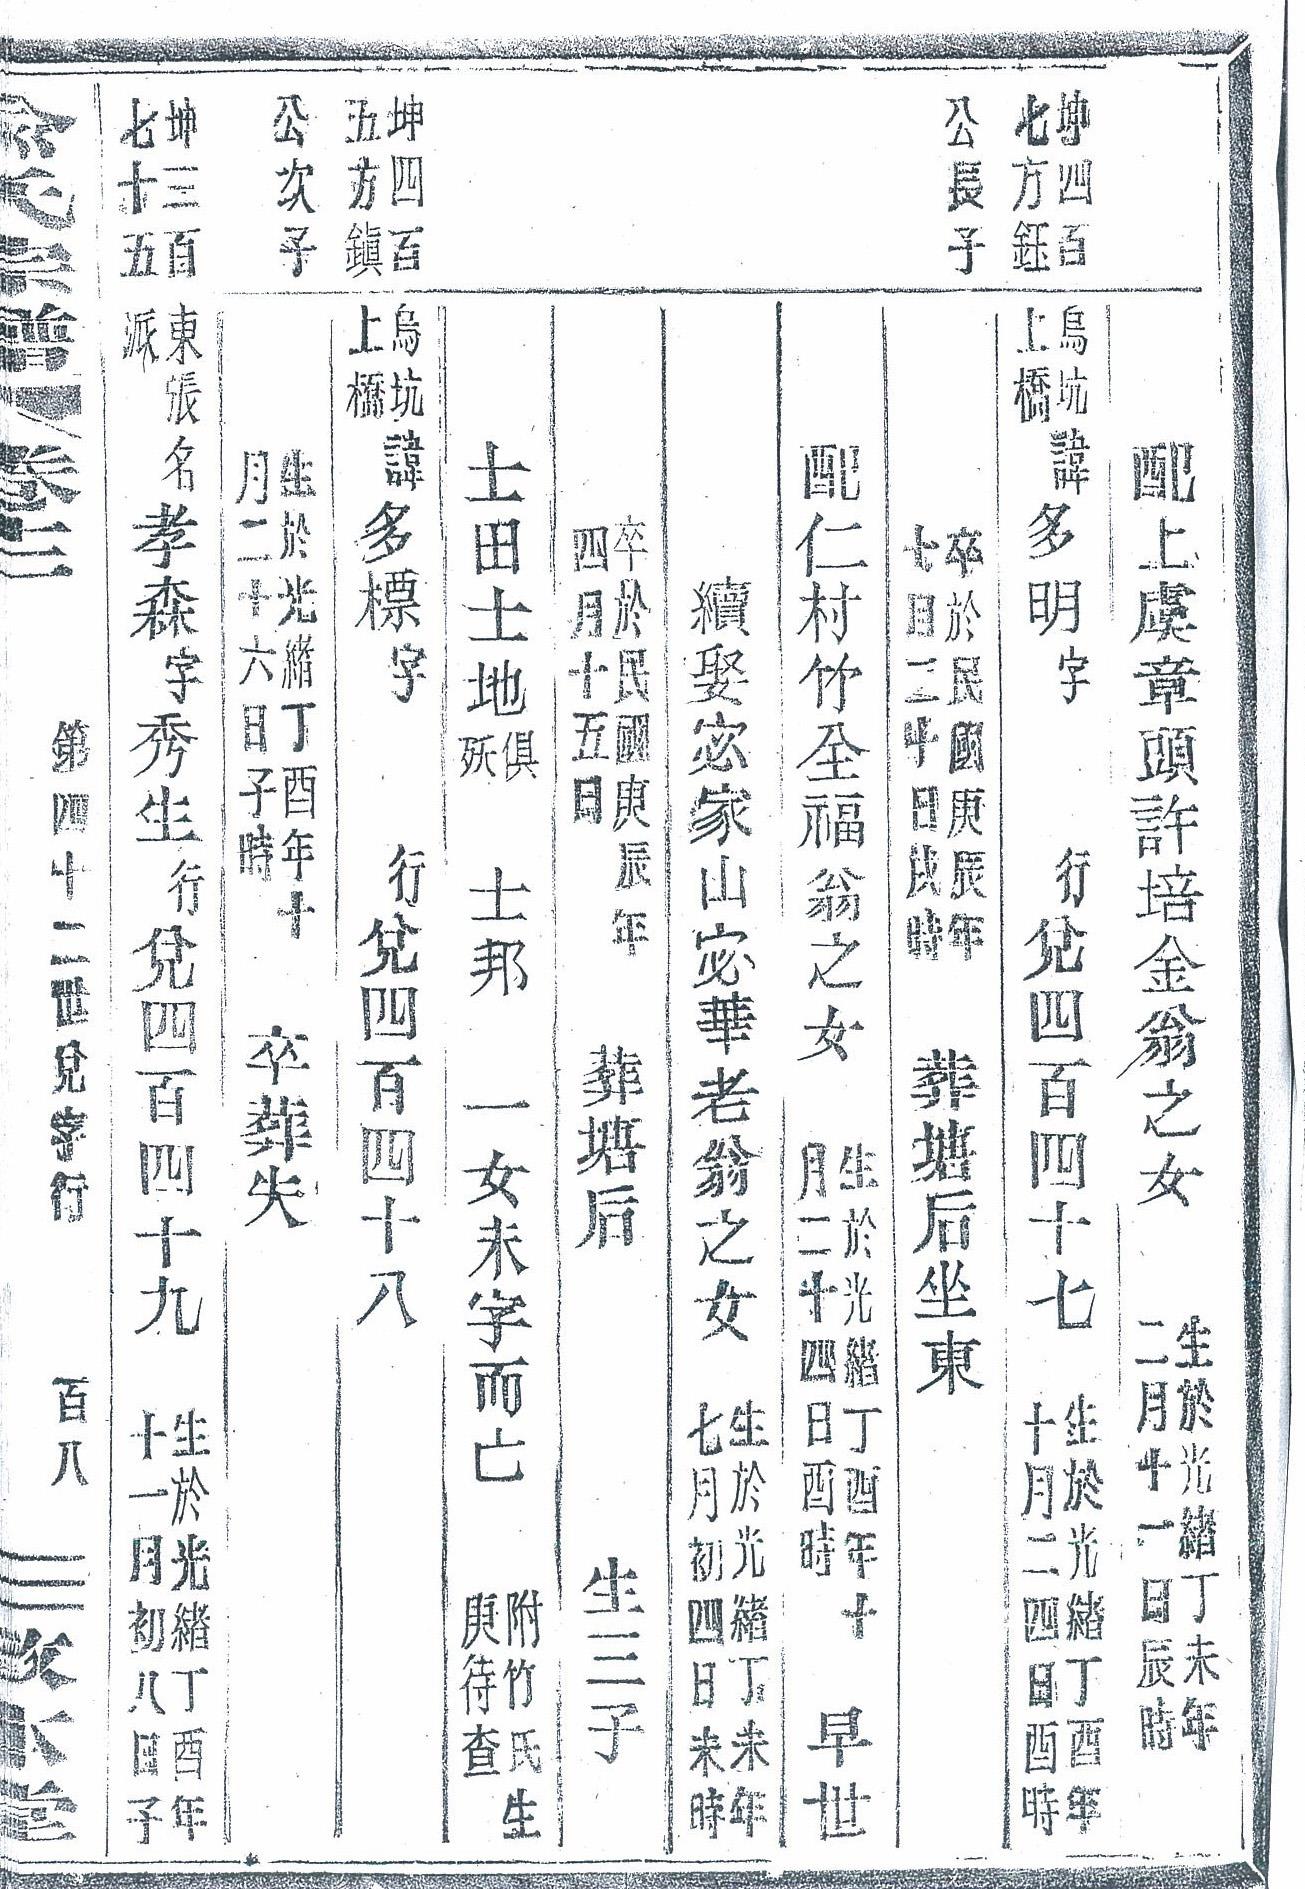 配上虞章頭許培金翁之女 生於光緒丁未年二月十一日辰時
坤四百七方鈺公長子
烏坑上橋 諱多明字 行兌四百四十七 生於光緒丁酉年十月二四日酉時
卒於民國庚辰年七日二十日戌時 葬塘后坐東
配仁村竹全福翁之女 生於光緒丁酉年十月二十四日酉時 早世
續娶宓家山宓華老翁之女 生於光緒丁未年七月初四日未時
卒於民國庚辰年四月十五日 葬塘后 生三子
士田士地俱殀 士邦 一女未字而亡 附竹氏生庚待查
坤四百五方鎮公次子
烏坑上橋 諱多標字 行兌四百四十八
生於光緒丁酉年十月二十六日子時 卒葬失
坤三百七十五
東張派 名孝森字秀生行兌四百四十九 生於光緒丁酉年十一月初八日子
氏宗譜 卷三 第四十二世兌字行 百八